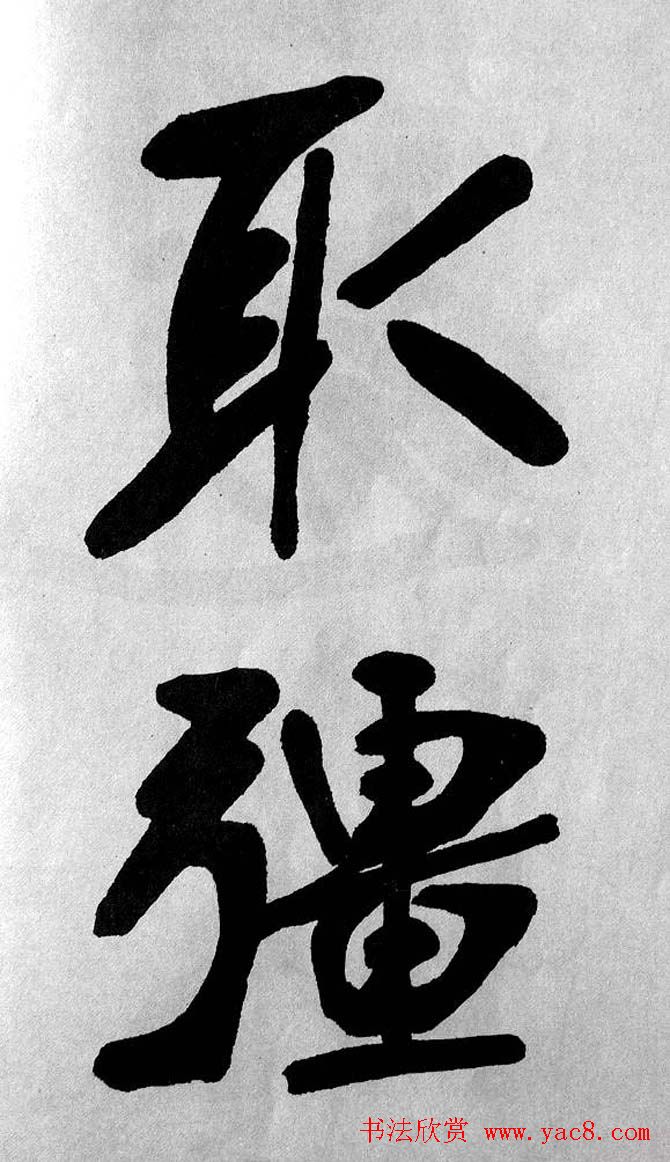 取彊
书法欣赏 www.yac8.com